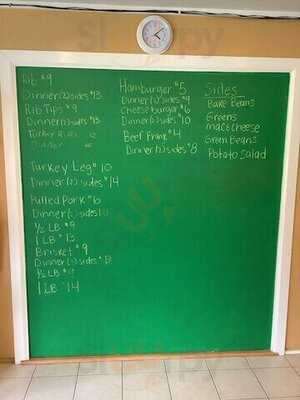 Rib $9
Dinner (2) sides $13
Rib Tips $9
Dinner (2) sides $13
Turkey
Dinner
Turkey Leg $10
Dinner (2) sides $14
Pulled Pork $6
Dinner (2) sides
½ LB $9
1 LB $13
Brisket $9
Dinner (2) sides
½ LB
1 LB $14
Hamburger $5
Dinner (2) sides $9
Cheeseburger $6
Dinner (2) sides $10
Beef Frank $4
Dinner (2) sides $8
Sides
Bake Beans
Greens
mac & Cheese
Green Beans
Potato Salad